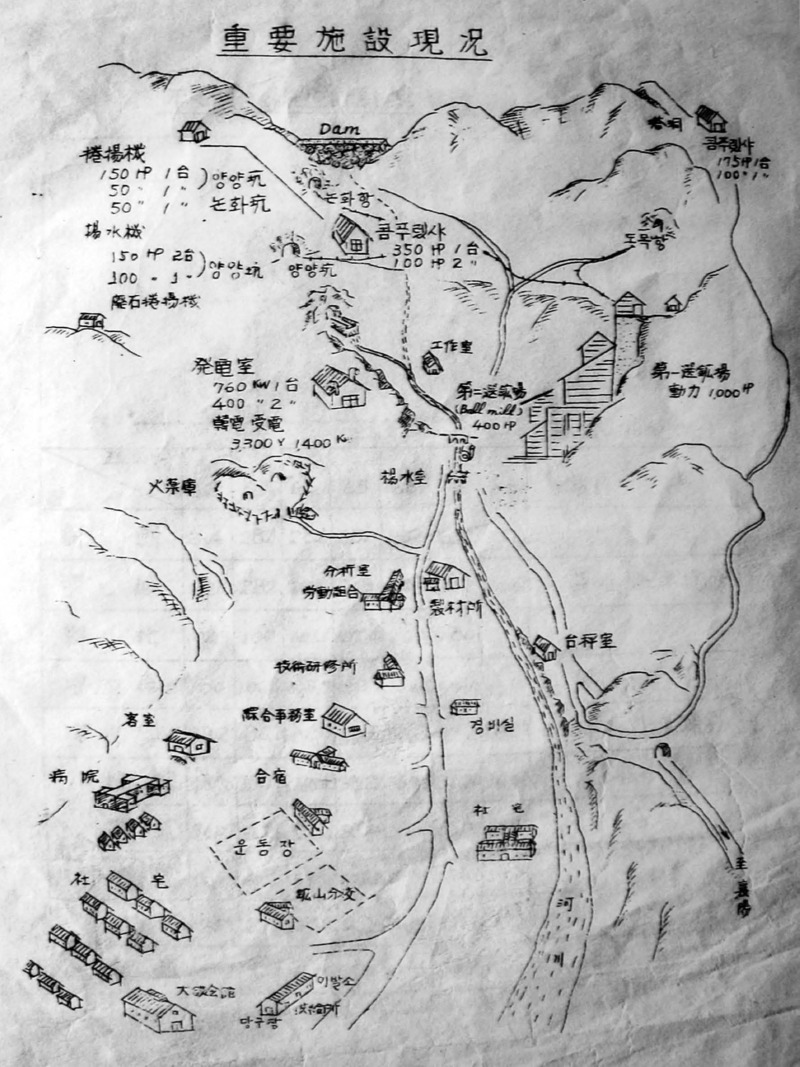 重要施設現況
Dam
塔洞
콤푸렛샤
175 HP 1台
100 〃 1 〃
捲揚機
150 HP 1台
50 〃 1 〃
양양坑
50 〃 1 〃
논화坑
논화항
도목항
콤푸렛샤
350 HP 1台
100 HP 2 〃
揚水機
150 HP 2台
100 〃 1 〃
양양坑
양양坑
廃石捲揚機
工作室
発電室
760 KW 1台
400 〃 2 〃
韓電受電
3,300 V 1,400 K
第二選鉱場
(Ball mill)
400 HP
第一選鉱場
動力 1,000 HP
揚水室
火薬庫
分析室
労動組合
製材所
台秤室
技術研修所
綜合事務室
경비실
客室
病院
合宿
社宅
운동장
社宅
鉱山分校
至襄陽
河川
大韓会舘
이발소
당구장